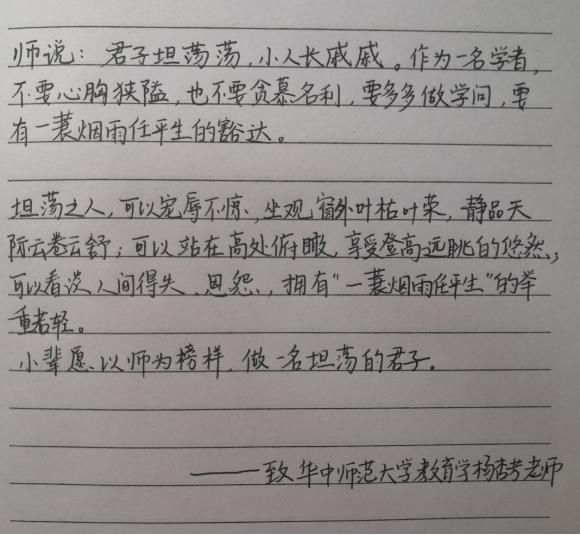 师说：君子坦荡荡，小人长戚戚。作为一名学者，
不要心胸狭隘，也不要贪慕名利，要多多做学问，要
有一蓑烟雨任平生的豁达。
坦荡之人，可以宠辱不惊，坐观窗外叶枯叶荣，静品天
际云卷云舒；可以站在高处俯瞰，享受登高远眺的悠然；
可以看淡人间得失、恩怨，拥有“一蓑烟雨任平生”的举
重若轻。
小辈愿以师为榜样，做一名坦荡的君子。
——致华中师范大学教育学杨老师